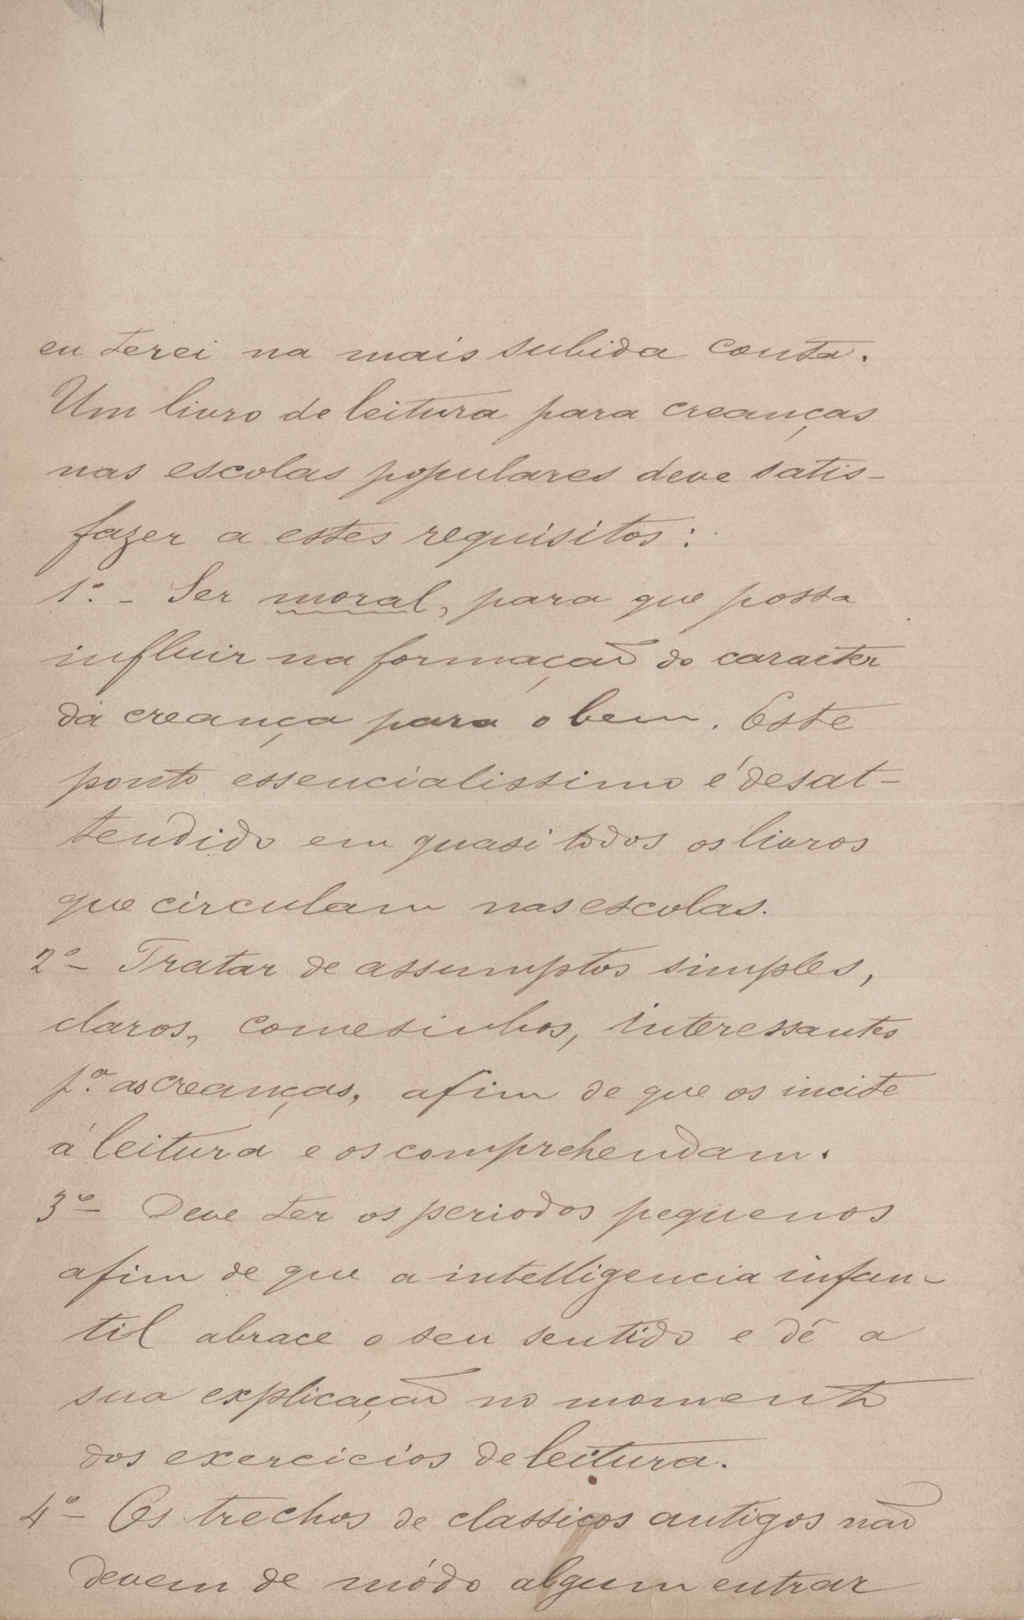 eu terei na mais subida conta.
Um livro de leitura para creanças
nas escolas populares deve satis-
fazer a estes requisitos:
1º. - Ser moral, para que possa
influir na formação do caracter
da creança para o bem. Este
ponto essencialissimo é desat-
tendido em quasi todos os livros
que circulam nas escolas.
2º - Tratar de assumptos simples,
claros, comesinhos, interessantes
pª as creanças, afim de que os incite
á leitura e os comprehendam.
3º - Deve ter os periodos pequenos
afim de que a intelligencia infan-
til abrace o seu sentido e dê a
sua explicação no momento
dos exercicios de leitura.
4º - Os trechos de classicos antigos não
devem de módo algum entrar